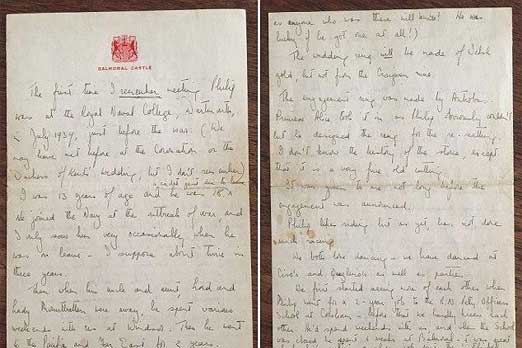 BALMORAL CASTLE
The first time I remember meeting Philip
was at the Royal Naval College, Dartmouth,
in July 1939, just before the war. (We
may have met before at the Coronation or the
Duchess of Kent's wedding, but I don't remember.)
I was 13 years of age and he was 18
a cadet just due to leave
He joined the Navy at the outbreak of war, and
I only saw him very occasionally when he
was on leave - I suppose about twice in
three years.
Then when his uncle and aunt, Lord and
Lady Mountbatten were away, he spent various
weekends with us at Windsor. Then he went
to the Pacific and Far East for 2 years
as anyone who was there will know! He was
lucky if he got one at all!)
The wedding ring will be made of Welsh
gold, but not from the Craigwen mine.
The engagement ring was made by Antrobus.
Princess Alice took it in as Philip obviously couldn't
but he designed the ring for the re-setting.
I don't know the history of the stone, except
that it is a very fine old cutting.
It was given to me not long before the
engagement was announced.
Philip likes riding but as yet, has not done
much racing.
We both love dancing - we have danced at
Ciro's and Quaglino's as well as parties.
We first started seeing more of each other when
Philip went for a 2-year job to the R.N. Petty Officers
School at Corsham - before that we hardly knew each
other. He'd spend weekends with us, and when the School
was closed he spent 6 weeks at Balmoral - it was great